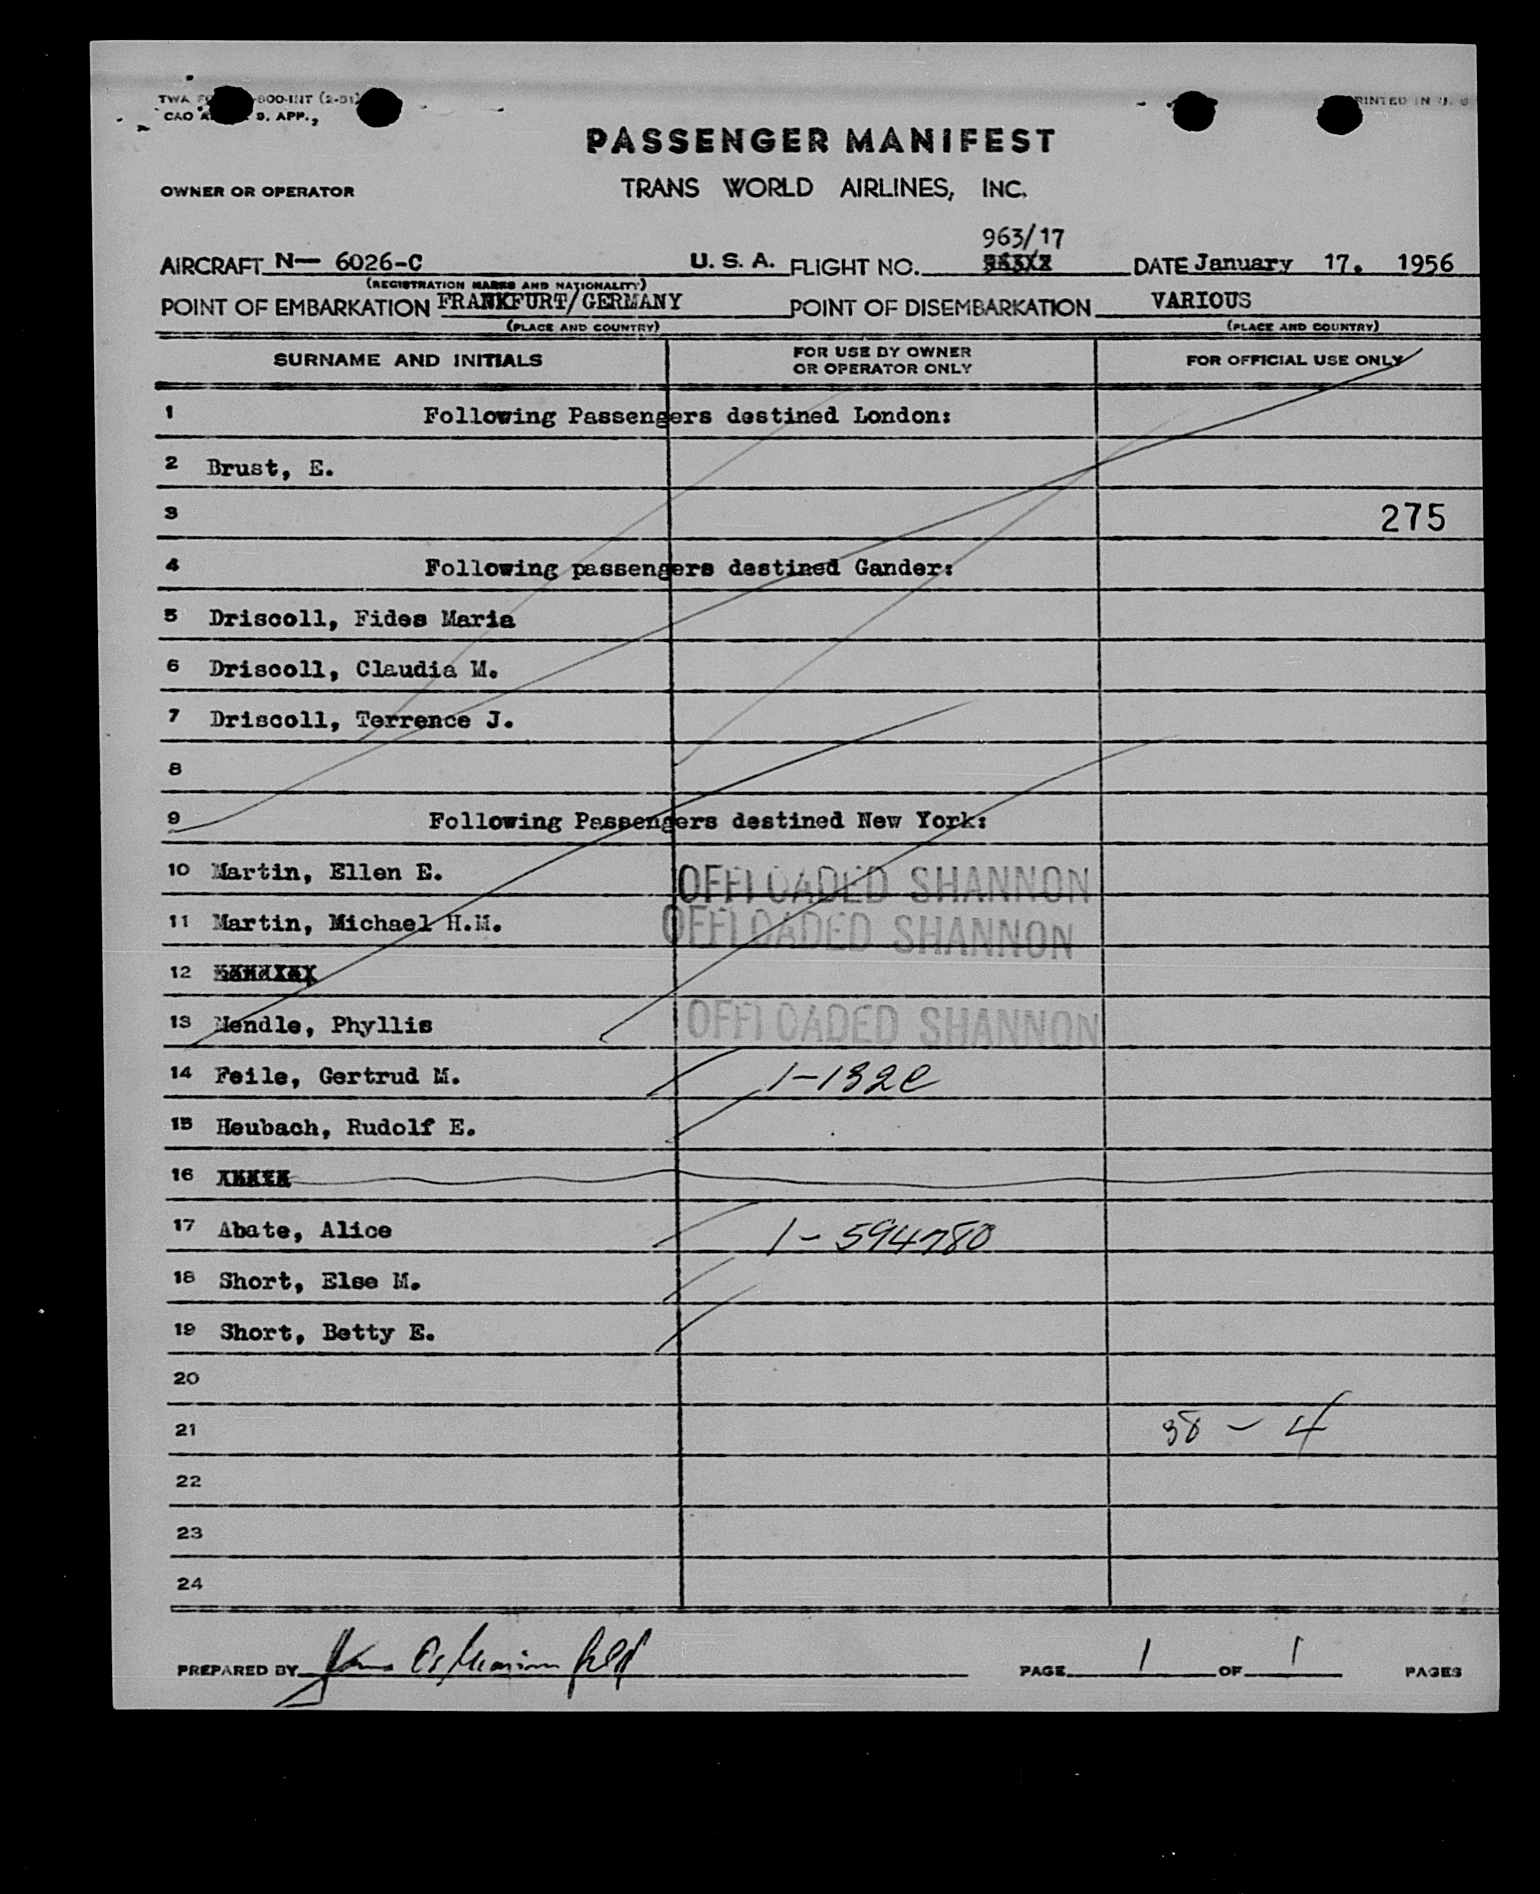 TWA -800-INT (2-51)
PRINTED IN U. S
CAO 9. APP.
PASSENGER MANIFEST
OWNER OR OPERATOR TRANS WORLD AIRLINES, INC.
963/17
AIRCRAFT N— 6026-C U. S. A. FLIGHT NO. DATE January 17. 1956
(REGISTRATION MARKS AND NATIONALITY)
POINT OF EMBARKATION FRANKFURT/GERMANY POINT OF DISEMBARKATION VARIOUS
(PLACE AND COUNTRY) (PLACE AND COUNTRY)
SURNAME AND INITIALS FOR USE BY OWNER OR OPERATOR ONLY FOR OFFICIAL USE ONLY
1 Following Passengers destined London:
2 Brust, E.
3 275
4 Following passengers destined Gander:
5 Driscoll, Fides Maria
6 Driscoll, Claudia M.
7 Driscoll, Terrence J.
8
9 Following Passengers destined New York:
10 Martin, Ellen E. OFFLOADED SHANNON
11 Martin, Michael H.M. OFFLOADED SHANNON
12
13 Mendle, Phyllis OFFLOADED SHANNON
14 Feile, Gertrud M. 1-132C
15 Heubach, Rudolf E.
16
17 Abate, Alice 1-594780
18 Short, Else M.
19 Short, Betty E.
20
21 38 - 4
22
23
24
PREPARED BY PAGE 1 OF 1 PAGES